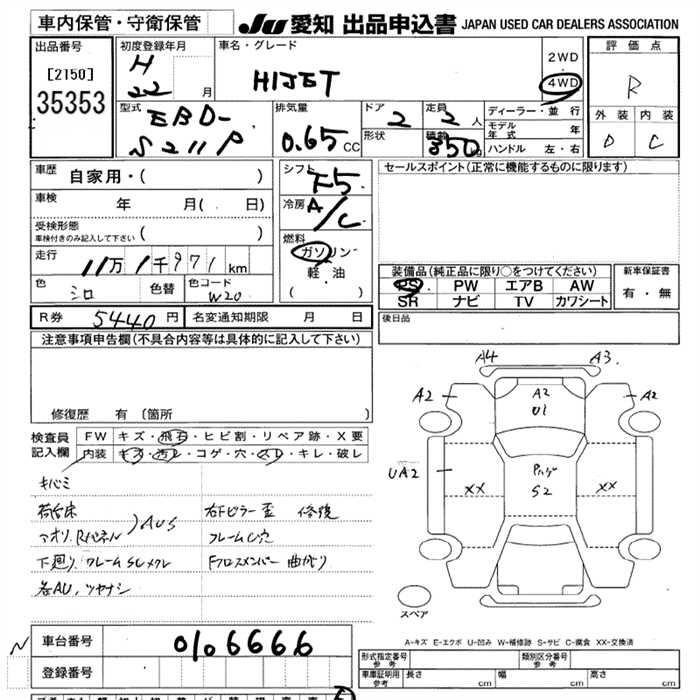 車内保管・守衛保管
JU 愛知 出品申込書 JAPAN USED CAR DEALERS ASSOCIATION
出品番号
[2150]
35353
初度登録年月
H
22 月
車名・グレード
HIJET
2WD
4WD
評価点
R
外装 内装
D C
型式
EBD-
S211P
排気量
0.65 CC
ドア
2
形状
定員
2 人
積載
350 kg
ディーラー・並行
モデル年式 年
ハンドル 左・右
車歴
自家用・( )
車検 年 月( 日)
受検形態
車検付きのみ記入して下さい ( )
走行
11万1千971 km
色 シロ
色替
色コード W20
シフト F5
冷房 A/C
燃料
ガソリン
軽油
( )
セールスポイント(正常に機能するものに限ります)
装備品(純正品に限り○をつけてください)
PS PW エアB AW
SR ナビ TV カワシート
新車保証書
有・無
R券 5440 円
名変通知期限 月 日
後日品
注意事項申告欄(不具合内容等は具体的に記入して下さい)
修復歴 有 〔箇所
検査員記入欄
FW キズ・飛石・ヒビ割・リペア跡・X要
内装 キズ・汚レ・コゲ・穴・スレ・キレ・破レ
キバミ
荷台床
アオリ、Rパネル )AUS
下廻り フレームSUメクレ
各AU、ツヤナシ
右Fピラー歪 修復
フレームC穴
Fクロスメンバー曲がり
A4 A3
A2 A2
A2
U1
UA2
XX XX
S2
スペア
A-キズ E-エクボ U-凹み W-補修跡 S-サビ C-腐食 XX-交換済
N 車台番号 0106666
登録番号
形式指定番号 参考
類別区分番号 参考
車庫証明用 参考 長さ cm 幅 cm 高さ cm